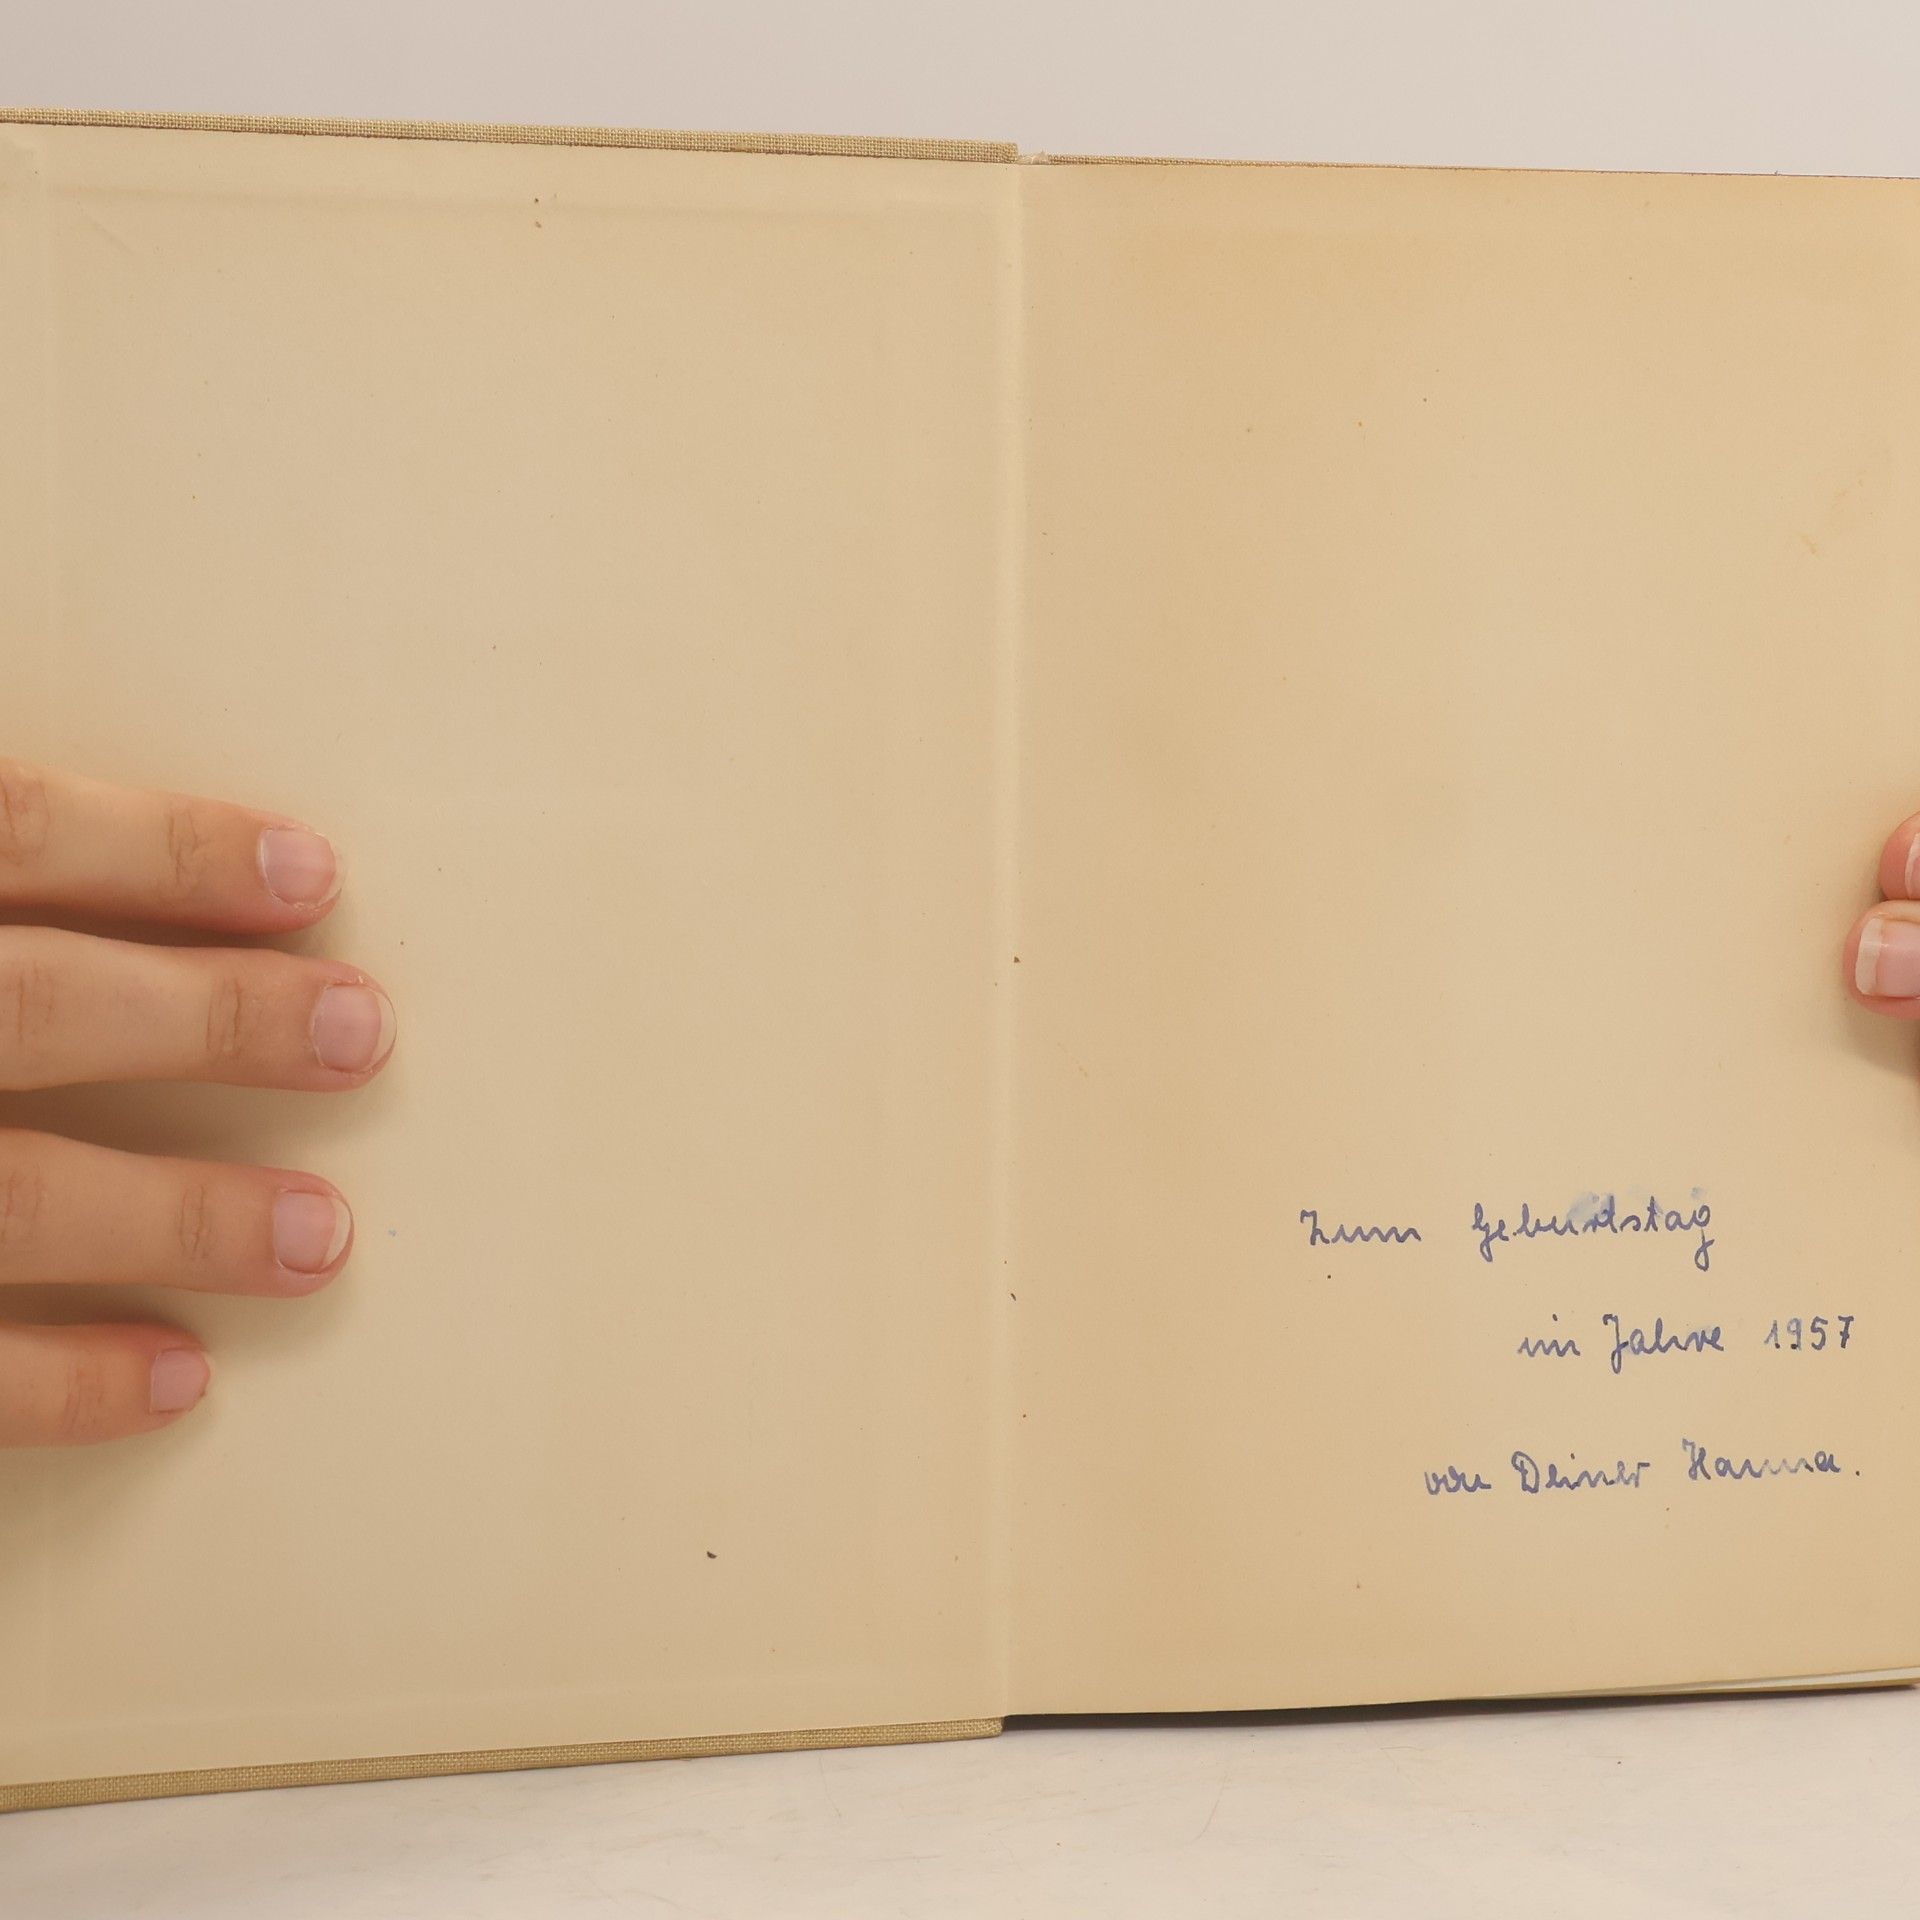 Zum Geburtstag
im Jahre 1957
von Deiner Hanna.